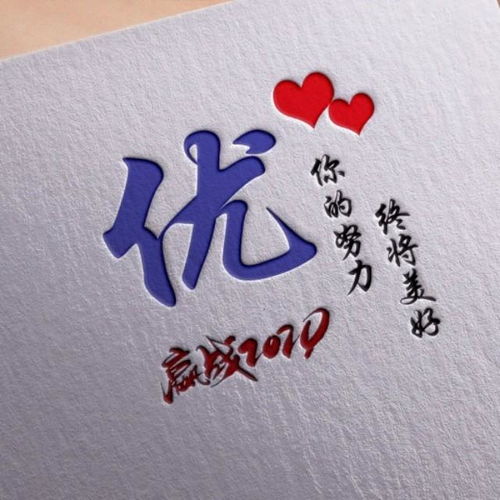 优
你的努力
终将美好
赢战2020